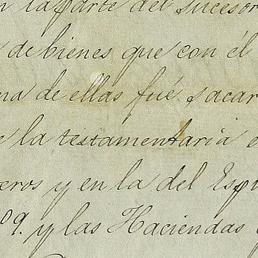 la parte del sucesor
de bienes que con él
na de ellas fué sacar
la testamentaria
eros y en la del Espi
09. y las Haciendas